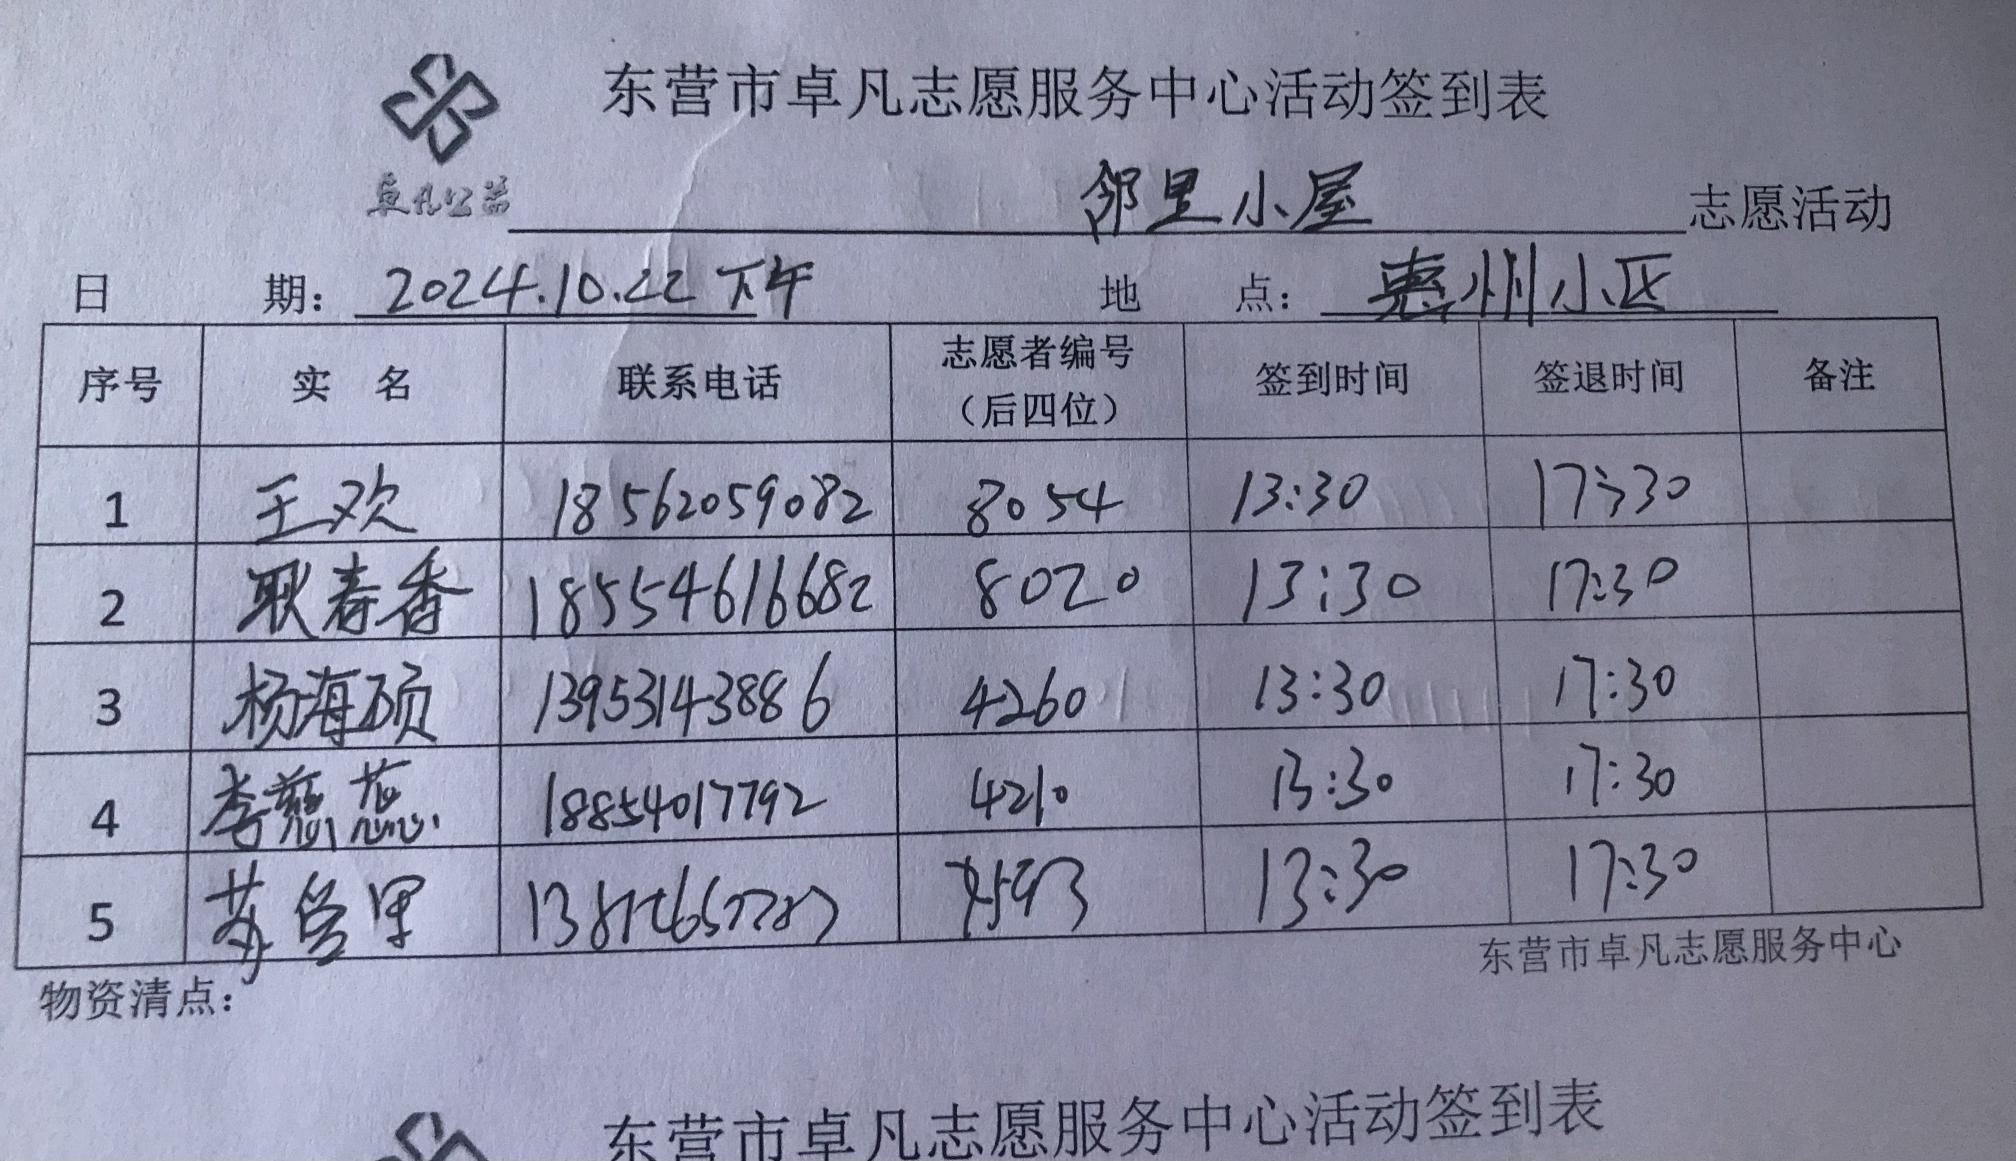 东营市卓凡志愿服务中心活动签到表
卓凡公益 邻里小屋 志愿活动
日 期: 2024.10.22下午 地 点: 惠州小区
序号 实 名 联系电话 志愿者编号（后四位） 签到时间 签退时间 备注
1 王欢 18562059082 8054 13:30 17:30
2 耿春香 18554616682 8020 13:30 17:30
3 杨海硕 13953143886 4260 13:30 17:30
4 李慈蕊 18854017792 4210 13:30 17:30
5 苏 13:30 17:30
东营市卓凡志愿服务中心
物资清点:
东营市卓凡志愿服务中心活动签到表